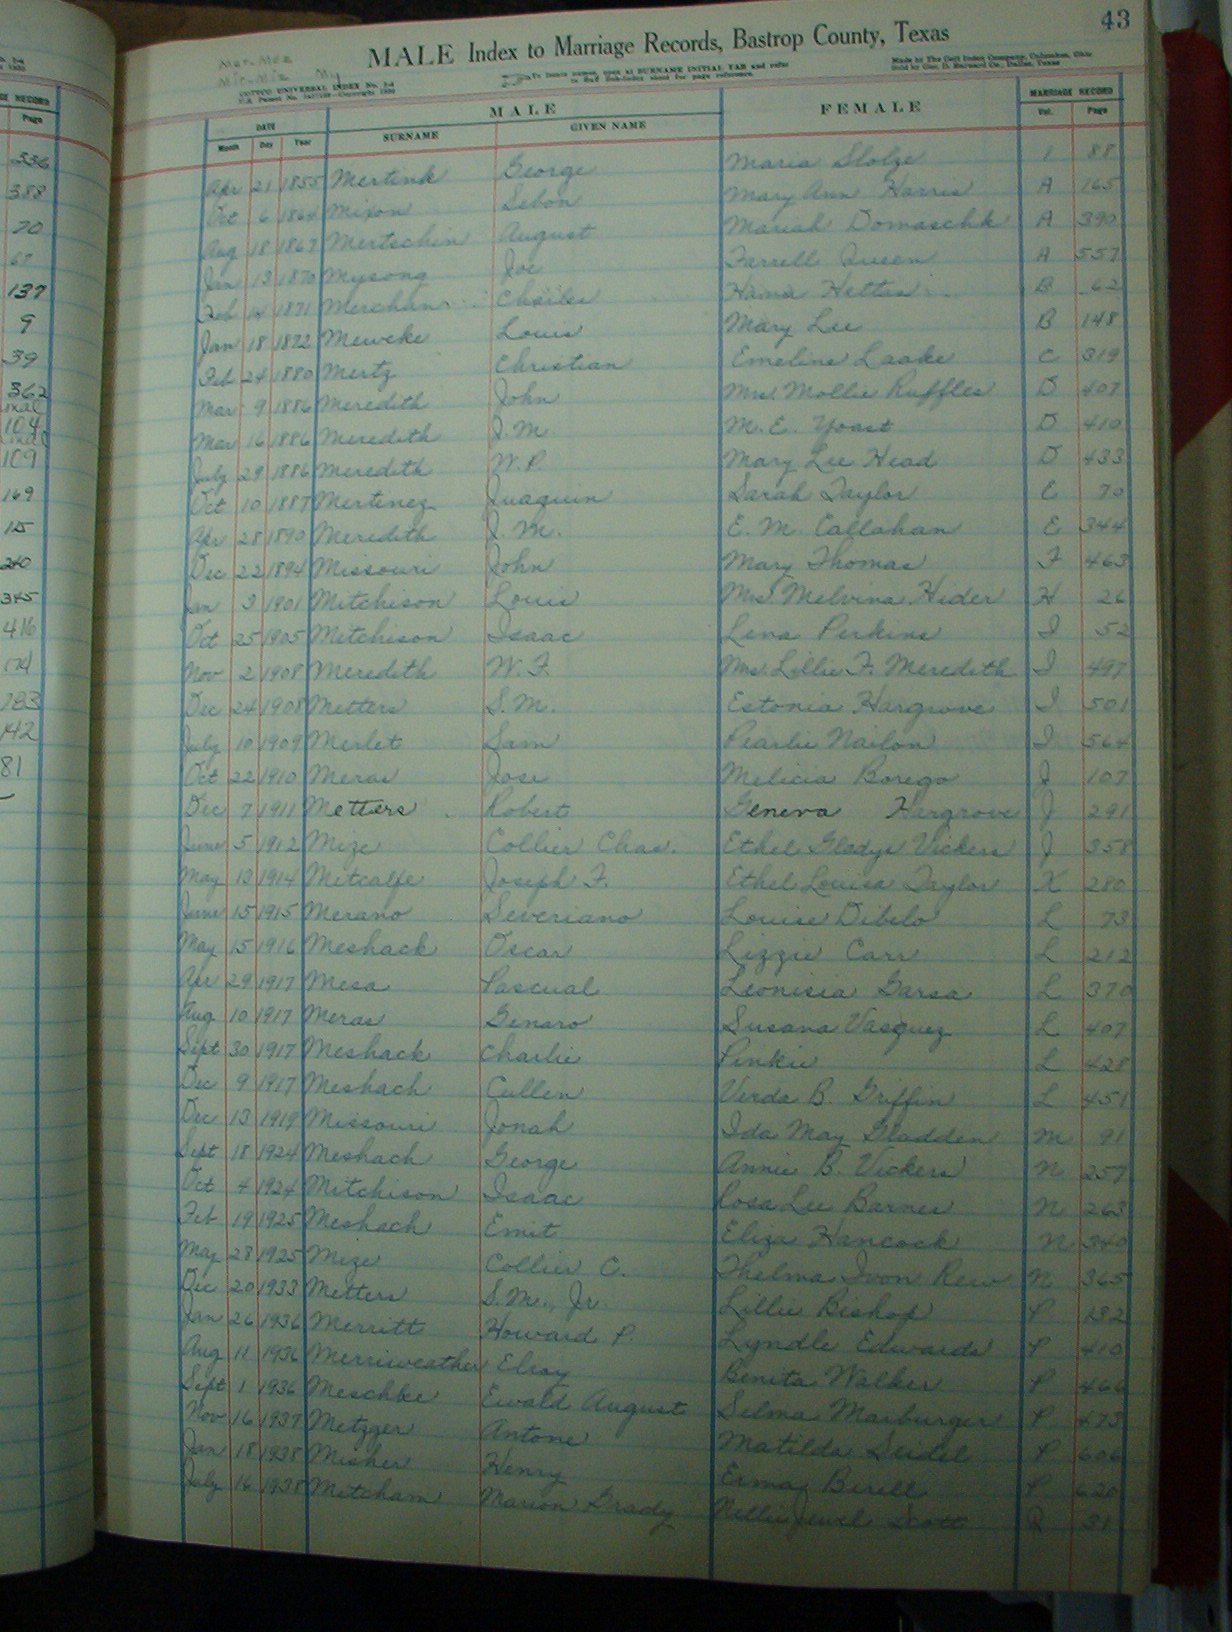 43
Mer. Mez
Mir. Miz My
MALE Index to Marriage Records, Bastrop County, Texas
COTTCO UNIVERSAL INDEX No. 3-4
To locate names, open at SURNAME INITIAL TAB and refer
to Buff Sub-Index sheet for page reference.
Made by The Cott Index Company, Columbus, Ohio
Sold by Geo. D. Barnard Co., Dallas, Texas
DATE MALE FEMALE MARRIAGE RECORD
Month Day Year SURNAME GIVEN NAME Vol. Page
Apr 21 1855 Mertink George Maria Slolze 1 88
Oct 6 1864 Mixon Sebon Mary Ann Harris A 165
Aug 18 1867 Mertschin August Mariah Domaschk A 390
Jan 13 1870 Mysong Joe Farrell Queen A 557
Feb 14 1871 Merchan Charles Hama Hettas B 62
Jan 18 1872 Mewcke Louis Mary Lee B 148
Feb 24 1880 Mertz Christian Emeline Laake C 319
Mar 9 1886 Meredith John Mrs. Mollie Raffles D 407
Mar 16 1886 Meredith J. M. M. E. Yoast D 410
July 29 1886 Meredith W. P. Mary Lee Head D 433
Oct 10 1887 Mertinez Juaquin Sarah Taylor E 70
Apr 28 1890 Meredith J. M. E. M. Callahan E 344
Dec 22 1894 Missouri John Mary Thomas F 463
Jan 3 1901 Mitchison Louis Mrs. Melvina Hider H 26
Oct 25 1905 Mitchison Isaac Lena Perkins I 52
Nov 2 1908 Meredith W. F. Mrs. Lillie F. Meredith I 497
Dec 24 1908 Metters S. M. Estonia Hargrove I 501
July 10 1909 Merlet Sam Pearlie Nailon I 564
Oct 22 1910 Meras Jose Melicia Borego J 107
Dec 7 1911 Metters Robert Geneva Hargrove J 291
June 5 1912 Mize Collier Chas. Ethel Gladys Vickers J 358
May 13 1914 Metcalfe Joseph F. Ethel Louisa Taylor K 280
June 15 1915 Merano Severiano Louise Dibelo L 73
May 15 1916 Meshack Oscar Lizzie Carr L 212
Apr 29 1917 Mesa Pascual Leonisia Garsa L 370
Aug 10 1917 Meras Genaro Susana Vasquez L 407
Sept 30 1917 Meshack Charlie Pinkie L 428
Dec 9 1917 Meshach Cullen Verda B. Griffin L 451
Dec 13 1919 Missouri Jonah Ida May Gladden M 91
Sept 18 1924 Meshach George Annie B. Vickers N 257
Oct 4 1924 Mitchison Isaac Rosa Lee Barnes N 263
Feb 19 1925 Meshach Emit Eliza Hancock N 340
May 28 1925 Mize Collier C. Thelma Ivon Rew N 365
Dec 20 1933 Metters S. M., Jr. Lillie Bishop P 132
Jan 26 1936 Merritt Howard P. Lyndle Edwards P 410
Aug 11 1936 Merriweather Elroy Benita Walker P 466
Sept 1 1936 Meschke Ewald August Selma Marburger P 473
Nov 16 1937 Metzger Antone Matilda Seidel P 606
Jan 18 1938 Misher Henry Erma Birell P 620
July 16 1938 Mitcham Marion Grady Nellie Jewel Scott Q 31
RECORD
Page
336
388
70
67
137
9
39
362
104
109
169
15
240
345
416
174
283
142
81